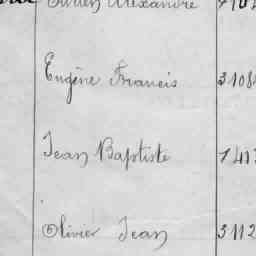 Alexandre
Eugène Francis 3108
Jean Baptiste 7417
Olivier Jean 3112